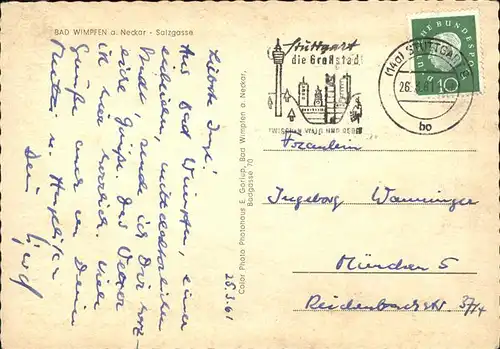 BAD WIMPFEN a. Neckar - Salzgasse
Liebste Inge!
Aus Bad Wimpfen, einer
mittelalterlichen
Stadt, sende ich Dir herz-
Grüße. Das Wetter
ist hier herrlich. Viele
Grüße auch an Deine
Mutter u.
Dein
Gerd
28.3.61
Color Photo Photohaus E. Gorlup, Bad Wimpfen a. Neckar,
Badgasse 70
Stuttgart
die Großstadt
(14a) STUTTGART
bo
DEUTSCHE BUNDESPOST
10
Fräulein
Ingeborg Wanninger
München 5
Reichenbachstr. 37/4